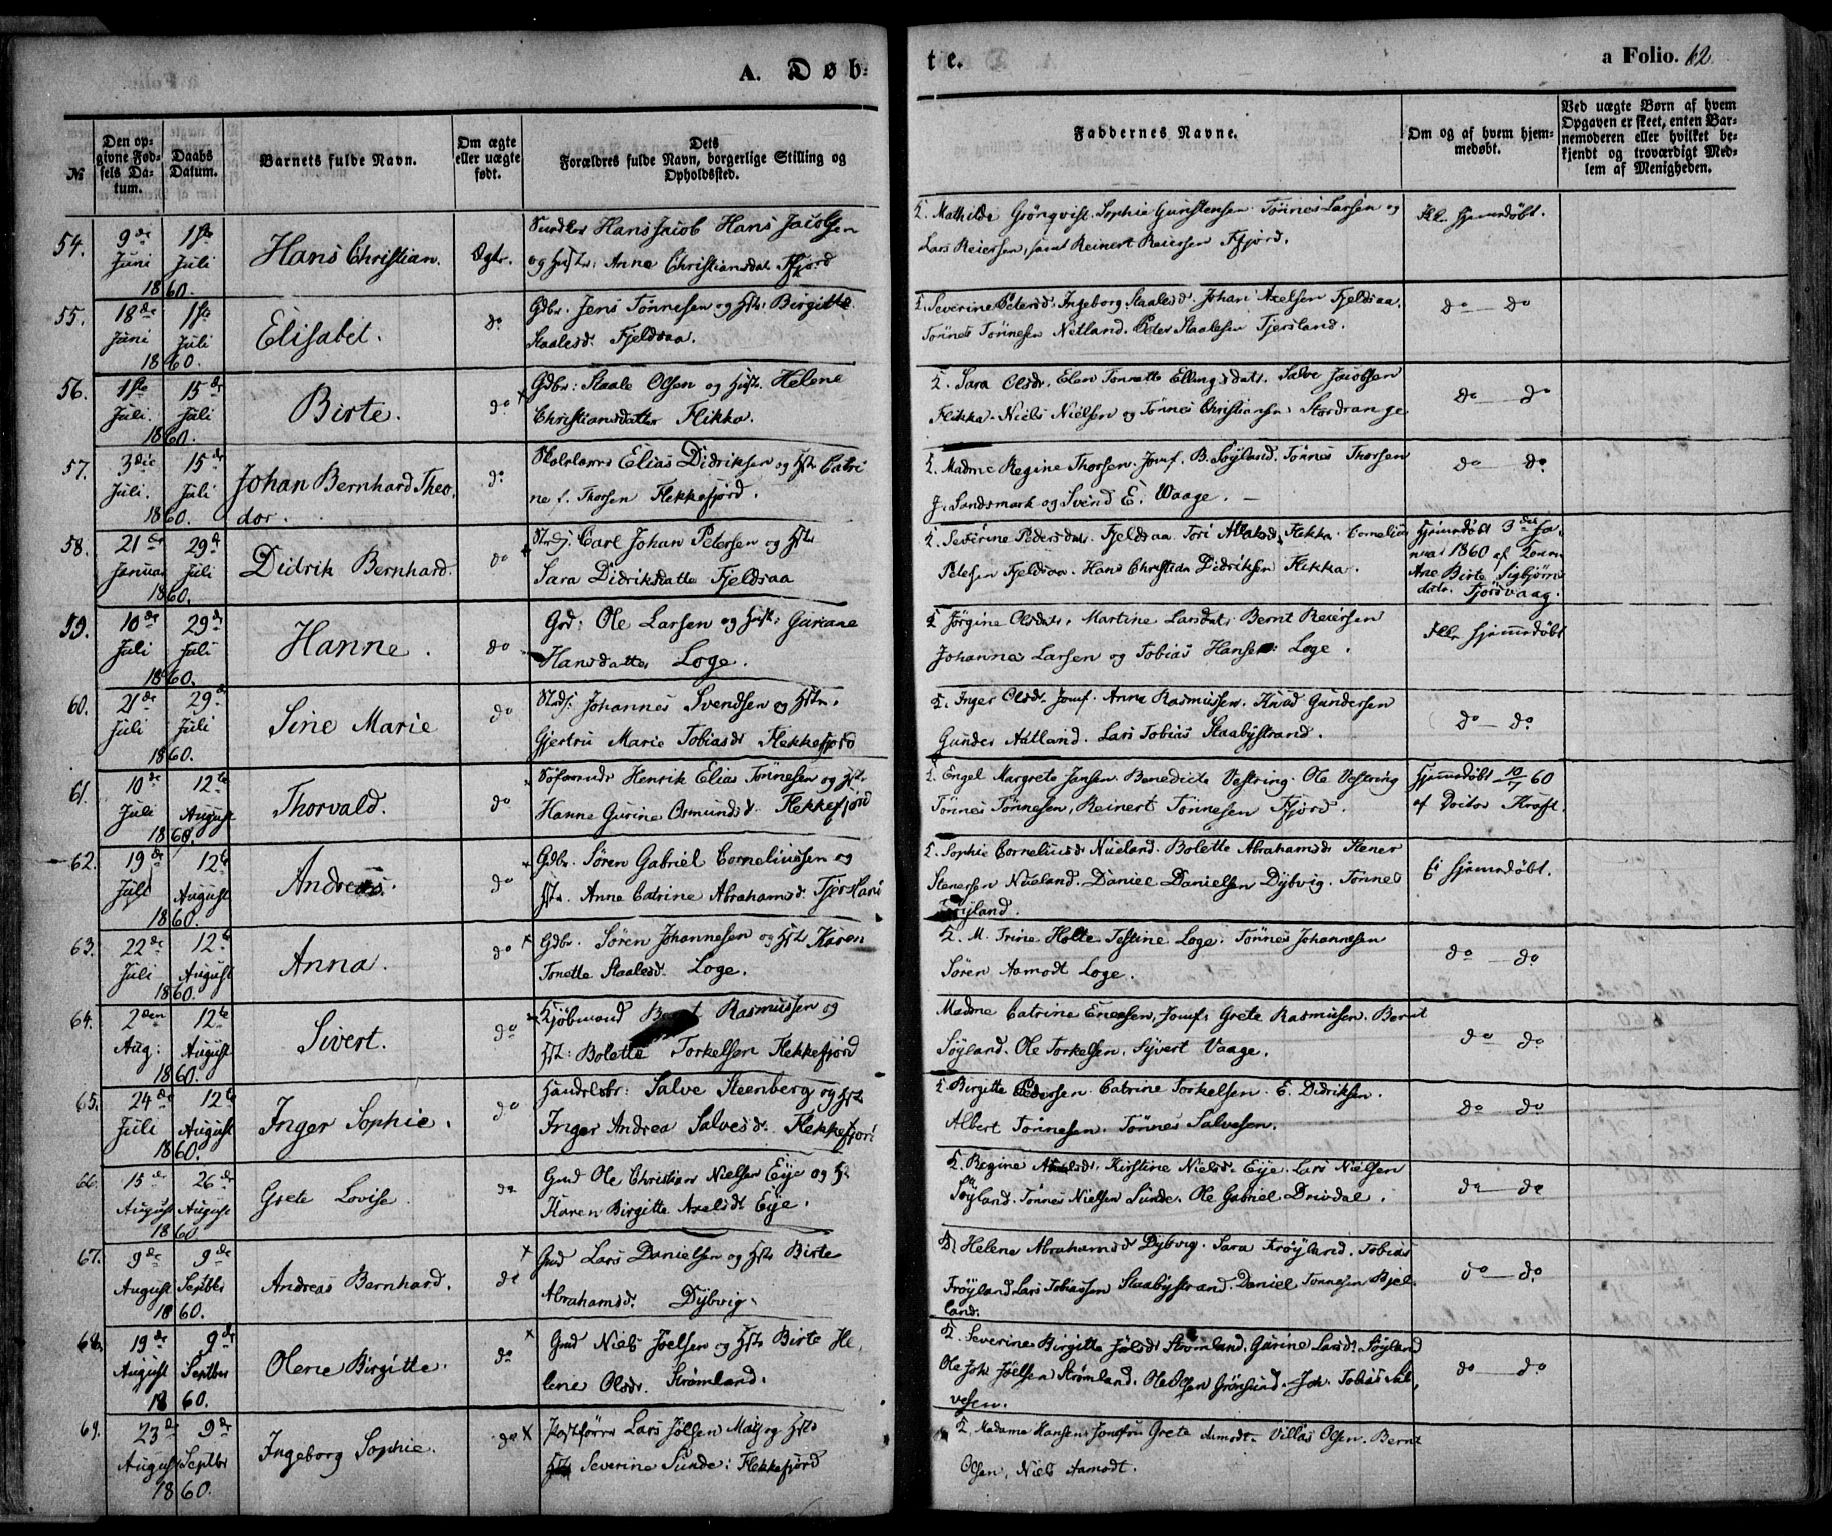 A. Døb-
te.
a Folio. 62
№
Den op-
givne Fød-
sels Da-
tum.
Daabs
Datum.
Barnets fulde Navn.
Om ægte
eller uægte
født.
Dets
Forældres fulde Navn, borgerlige Stilling og
Opholdssted.
Faddernes Navne.
Om og af hvem hjem-
medøbt.
Ved uægte Børn af hvem
Opgaven er skeet, enten Bar-
nemoderen eller hvilket be-
kjendt og troværdigt Med-
lem af Menigheden.
54. 9de Juni 1ste Juli 1860. Hans Christian. Ægte.
Hans Jacob Hans Jacobsen
og Hstr: Anne Christiansdat. Ffjord
Mathilde Grönqvist. Sophie Gunstensen. Tönnes Larsen og
Lars Reiersen, samt Reinert Reiersen Ffjord.
hjemdøbt.
55. 18de Juni 1ste Juli 1860. Elisabet. do
Gdbr. Jens Tönnesen og Hst: Birgitte
Staalesd. Fjeldsaa.
Severine Petersd. Ingeborg Staalesd. Johan Axelsen Fjeldsaa.
Tönnes Tönnesen Netland. Peder Staalesen Tjersland.
do — do
56. 1ste Juli. 15de Juli 1860. Birte. do
Gdbr: Staale Olsen og Hust. Helene
Christiansdatter Flikka.
Sara Olsdr. Elen Tonette Ellingsdatr. Salve Jacobsen
Flikka. Niels Nielsen og Tönnes Christiansen Stordrange
do — do
57. 3die Juli. 15de Juli 1860. Johan Bernhard Theo-
dor. do
Elias Didriksen og Hst Catri
ne f. Thorsen Flekkefjord.
Madme Regine Thorsen. Jomf. B. Söyland. Tönnes Thorsen
J. Sandsmark og Svend E. Waage. —
do — do
58. 21de Januar 29de Juli 1860. Didrik Bernhard. do
Carl Johan Petersen og Hst
Sara Didriksdatter Fjeldsaa
Severine Pedersdatr. Fjeldsaa. Tori Flikka. Cornelius
Petersen Fjeldsaa. Hans Christian Didriksen Flikka.
Hjemdøbt 3 Ja-
nuar 1860 af
Ane Birte Sigbjörns
datr. Fjösvaag.
59. 10de Juli 29de Juli 1860. Hanne. do
Grd: Ole Larsen og Hust: Guriane
Hansdatter Loge.
Jörgine Olsdatr. Martine Larsdatr. Bernt Reiersen
Johannes Larsen og Tobias Hansen Loge.
hjemdøbt
60. 21de Juli 29de Juli 1860. Sine Marie do
Johannes Svendsen og Hstr.
Gjertru Marie Tobiasdr Flekkefjord
Inger Olsdr. Jomf. Anna Rasmussen. Knud Gundersen
Gunder Aatland. Lars Tobias Staabystrand.
do — do
61. 10de Juli 12te August 1860. Thorvald. do
Henrik Elias Tönnesen og Hstr
Hanne Gurine Osmundsd. Flekkefjord
Engel Margrete Jansen. Benedicte Vestring. Ole Vestring
Tönnes Tönnesen, Reinert Tönnesen Ffjord.
Hjemdöbt 10/7 60
af Doctor Kraft.
62. 19de Juli 12te August 1860. Andreas. do
Gdbr. Sören Gabriel Corneliussen og
Hstr. Anne Catrine Abrahamsd. Tjersland
Sophie Corneliusd Nueland. Bolette Abrahamsdr Stener
Stenersen Nueland. Daniel Danielsen Dybvig. Tönnes
Fröyland.
hjemdøbt.
63. 22de Juli 12te August 1860. Anna. do
Gdbr. Sören Johannesen og Hst Karen
Tonette Staalesd. Loge.
M. Trine Holte. Jestine Loge. Tönnes Johannesen
Sören Aamodt Loge.
do — do
64. 2den Aug: 12te August 1860. Sivert. do
Kjöbmand Rasmussen og
Hst: Bolette Torkelsen Flekkefjord
Madme Catrine Enersen, Jomf: Grete Rasmussen. Bernt
Söyland. Ole Torkelsen. Syvert Vaage.
do — do
65. 24de Juli 12te August 1860. Inger Sophie. do
Handelsbr: Salve Steenberg og Hst
Inger Andrea Salvesd. Flekkefjord
Birgitte Pedersen. Catrine Torkelsen. E. Didriksen.
Albert Tönnesen. Tönnes Salvesen.
do — do
66. 15de August 26de August 1860 Grete Lovise. do
Gmd Ole Christian Nielsen Eye og H
Karen Birgitte Axelsdt Eye.
Regine Axelsdr. Kirstine Nielsd. Eye. Lars Nielsen
Söyland. Tönnes Nielsen Sunde. Ole Gabriel Drivdal.
do — do
67. 9de August 9de Septbr 1860. Andreas Bernhard. do
Gmd Lars Danielsen og Hst Birte
Abrahamsd. Dybvig.
Helene Abrahamsd Dybvig. Sara Fröyland. Tobias
Fröyland Lars Tobiassen Staabystrand. Daniel Tönnesen Bjel-
land.
do — do
68. 19de August 9de Septbr 1860. Olene Birgitte. do
Gmd Niels Joelsen og Hst Birte He-
lene Olsdr. Strömland.
Severine Birgitte Joelsd Strömland. Gurine Larsd. Söyland
Ole Joh. Joelsen Strömland. Ole Olsen Grönsund. Joh. Tobias Sal-
vesen.
do — do
69. 23de August 9de Septbr 1860. Ingeborg Sophie. do
Postförer Lars Jölsen Moy og Hst
Severine Sunde: Flekkefjord
Madame Hansen Jomfru Grete Aamodt. Villas Olsen. Bernt
Olsen, Niels Aamodt.